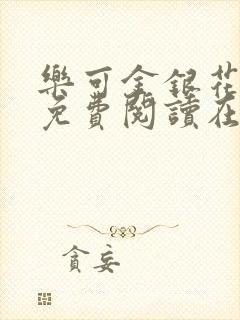 樂可金銀花
免費閱讀在
貪妄